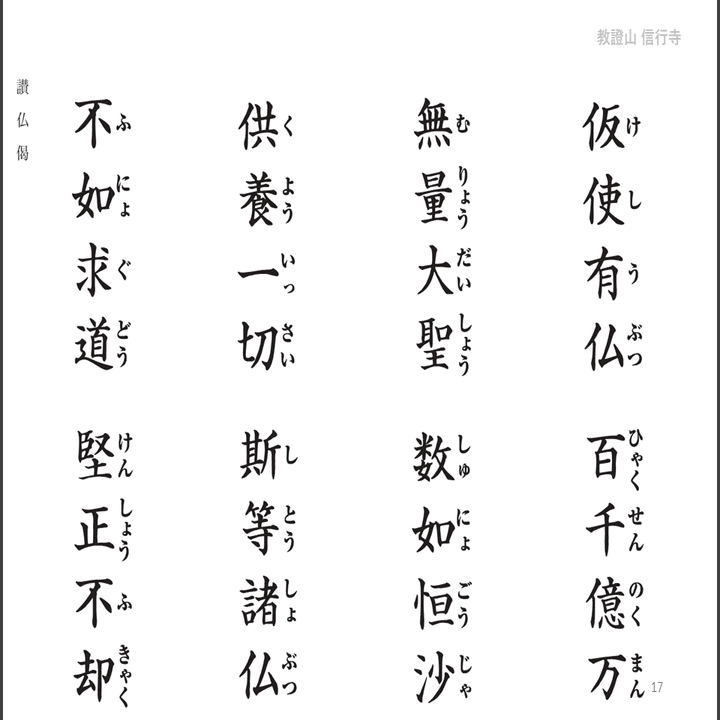 教證山 信行寺
仮使有仏 百千億万
けしうぶつ ひゃくせんのくまん
無量大聖 数如恒沙
むりょうだいしょう しゅにょごうじゃ
供養一切 斯等諸仏
くよういっさい しとうしょぶつ
不如求道 堅正不却
ふにょぐどう けんしょうふきゃく
讃仏偈
17